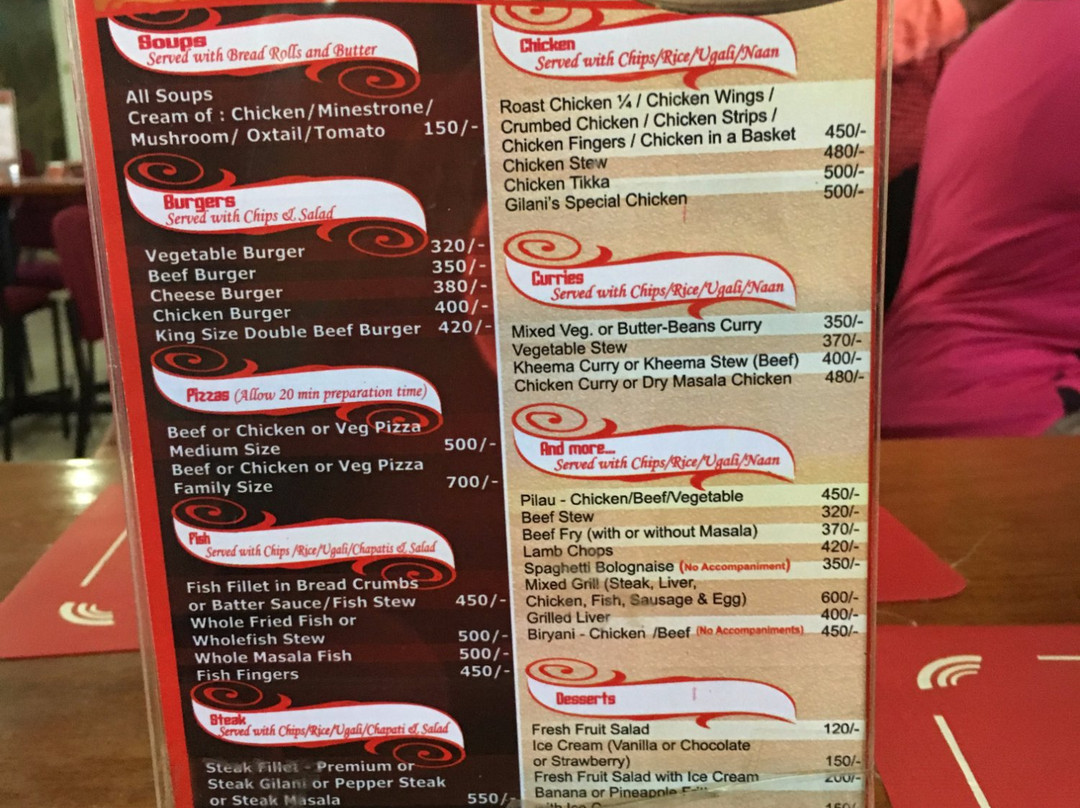 Soups
Served with Bread Rolls and Butter
All Soups
Cream of : Chicken/Minestrone/
Mushroom/ Oxtail/Tomato 150/-
Burgers
Served with Chips & Salad
Vegetable Burger 320/-
Beef Burger 350/-
Cheese Burger 380/-
Chicken Burger 400/-
King Size Double Beef Burger 420/-
Pizzas (Allow 20 min preparation time)
Beef or Chicken or Veg Pizza
Medium Size 500/-
Beef or Chicken or Veg Pizza
Family Size 700/-
Fish
Served with Chips /Rice/Ugali/Chapatis & Salad
Fish Fillet in Bread Crumbs
or Batter Sauce/Fish Stew 450/-
Whole Fried Fish or
Wholefish Stew 500/-
Whole Masala Fish 500/-
Fish Fingers 450/-
Steak
Served with Chips/Rice/Ugali/Chapati & Salad
Steak Fillet - Premium or
Steak Gilani or Pepper Steak
or Steak Masala 550/-
Chicken
Served with Chips/Rice/Ugali/Naan
Roast Chicken ¼ / Chicken Wings /
Crumbed Chicken / Chicken Strips /
Chicken Fingers / Chicken in a Basket 450/-
Chicken Stew 480/-
Chicken Tikka 500/-
Gilani's Special Chicken 500/-
Curries
Served with Chips/Rice/Ugali/Naan
Mixed Veg. or Butter-Beans Curry 350/-
Vegetable Stew 370/-
Kheema Curry or Kheema Stew (Beef) 400/-
Chicken Curry or Dry Masala Chicken 480/-
And more...
Served with Chips/Rice/Ugali/Naan
Pilau - Chicken/Beef/Vegetable 450/-
Beef Stew 320/-
Beef Fry (with or without Masala) 370/-
Lamb Chops 420/-
Spaghetti Bolognaise (No Accompaniment) 350/-
Mixed Grill (Steak, Liver,
Chicken, Fish, Sausage & Egg) 600/-
Grilled Liver 400/-
Biryani - Chicken /Beef (No Accompaniments) 450/-
Desserts
Fresh Fruit Salad 120/-
Ice Cream (Vanilla or Chocolate
or Strawberry) 150/-
Fresh Fruit Salad with Ice Cream 200/-
Banana or Pineapple